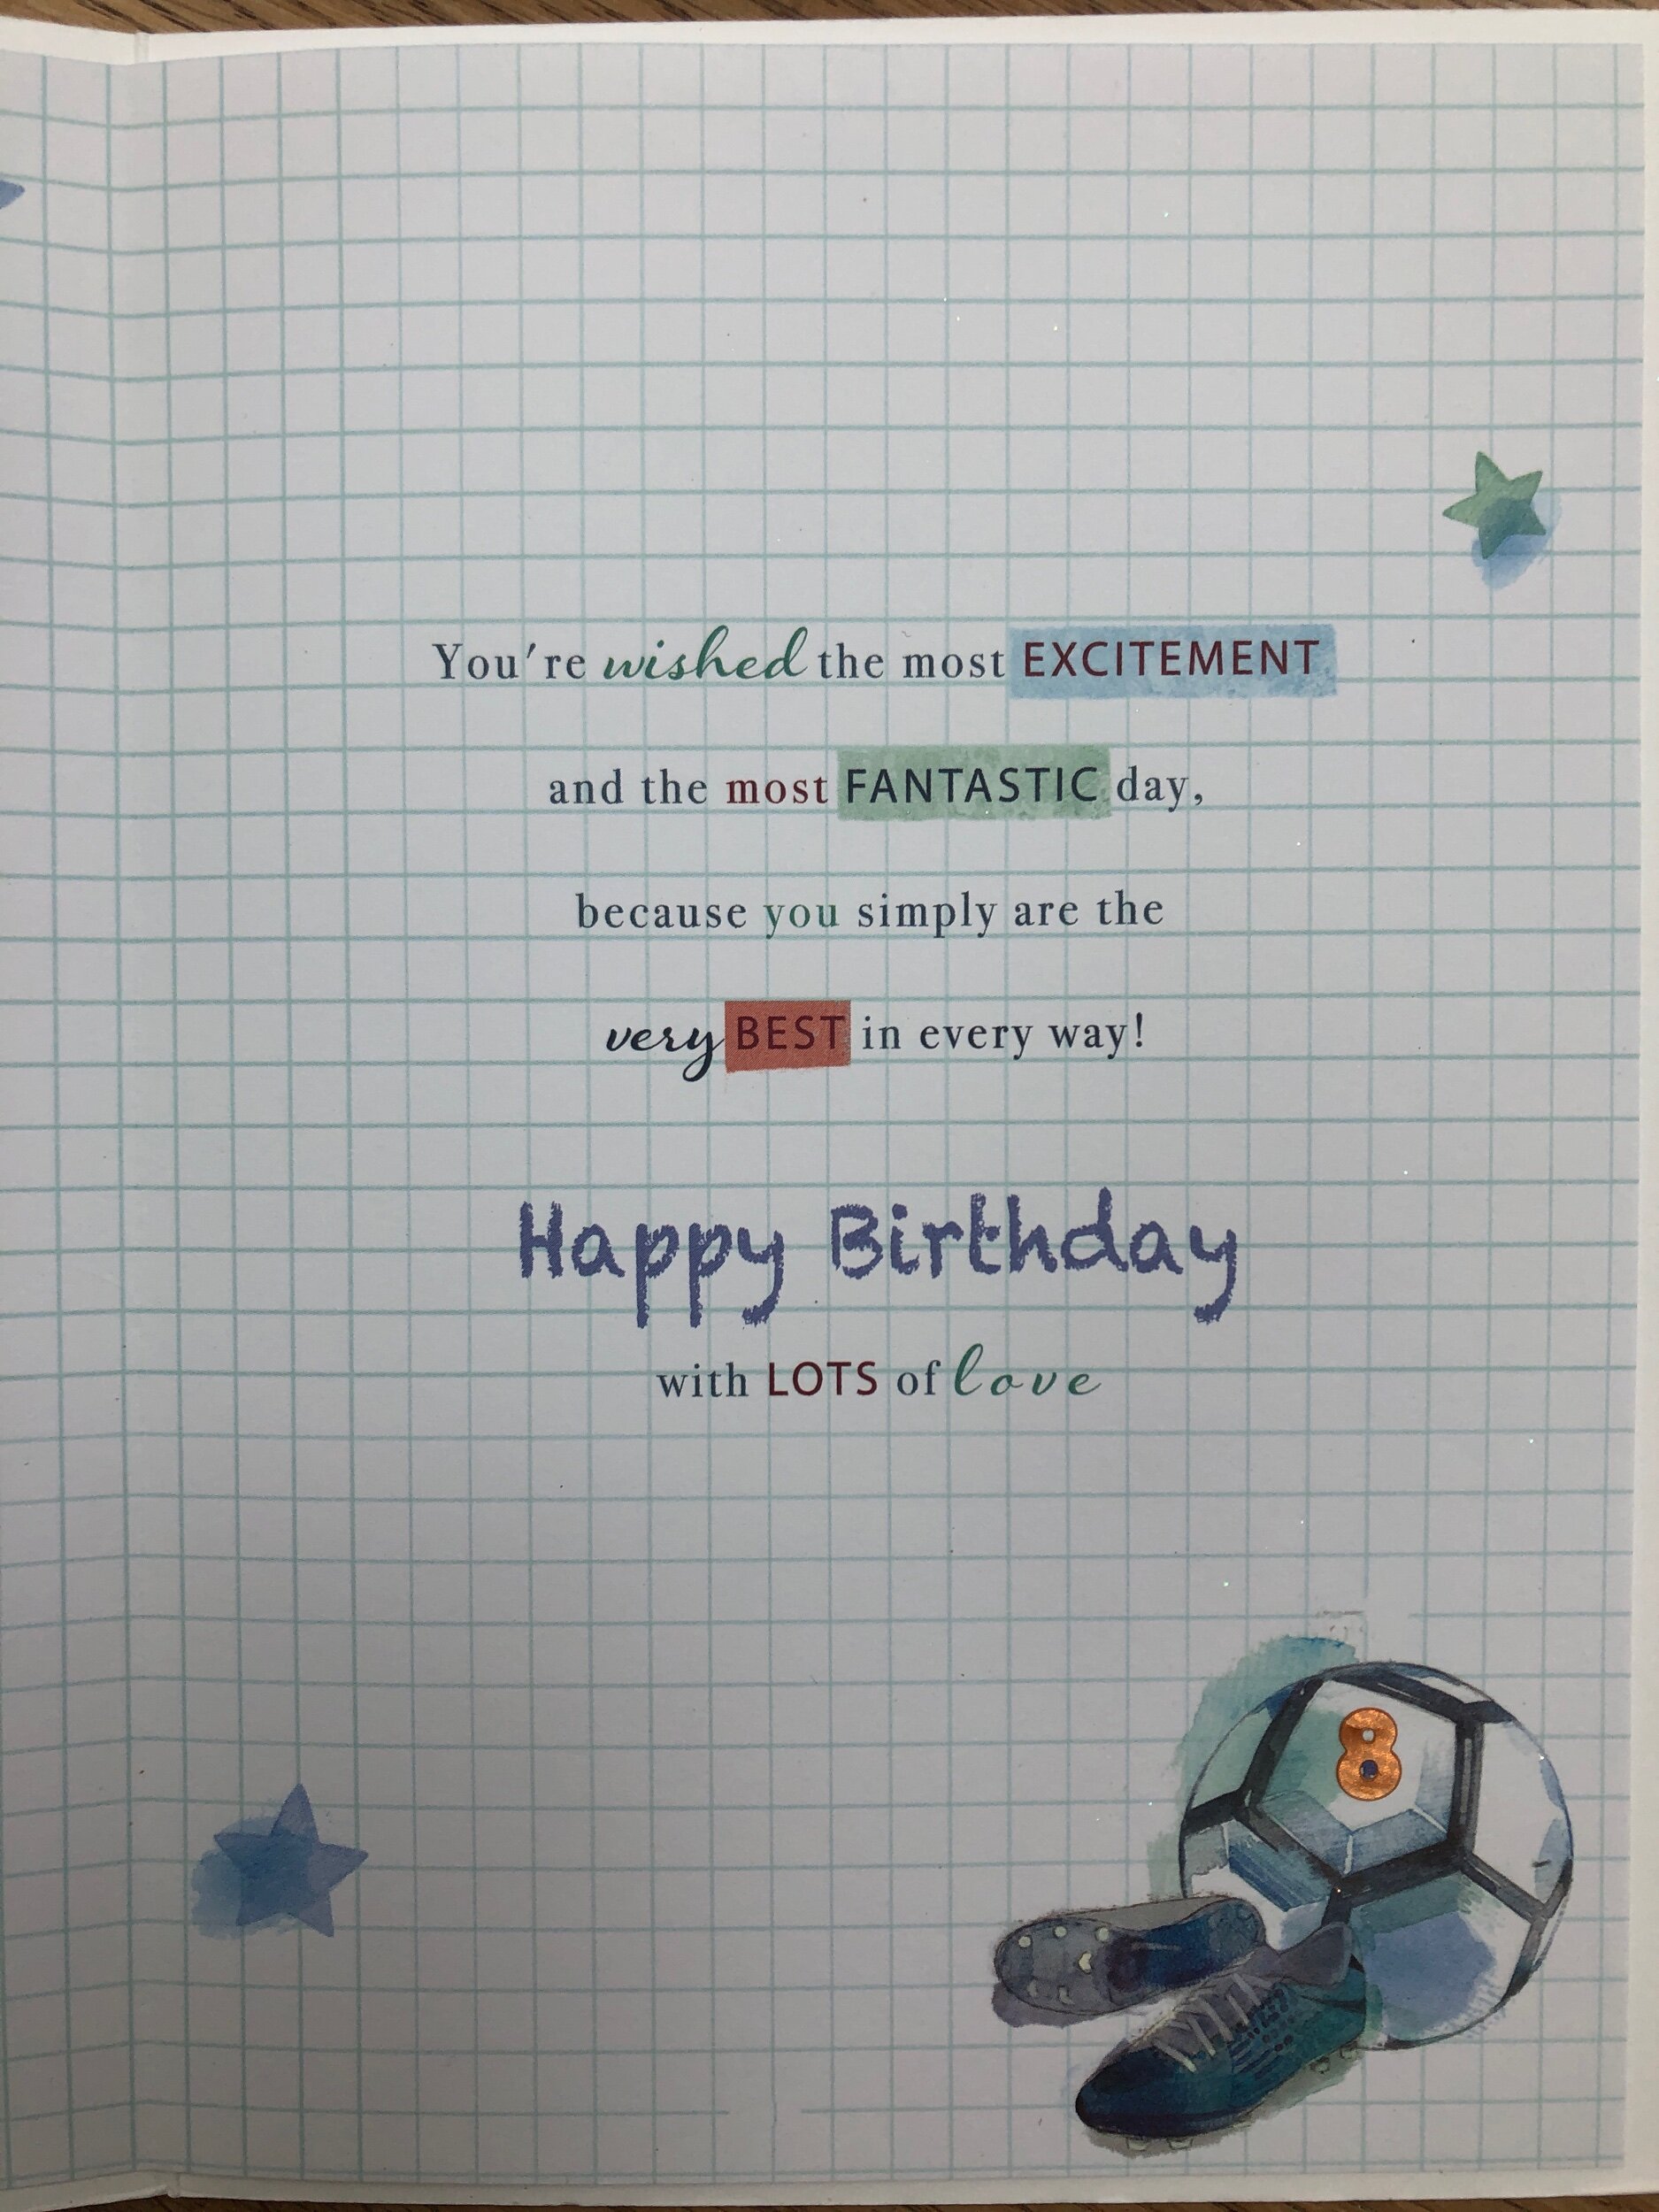 You're wished the most EXCITEMENT
and the most FANTASTIC day,
because you simply are the
very BEST in every way!
Happy Birthday
with LOTS of love
8